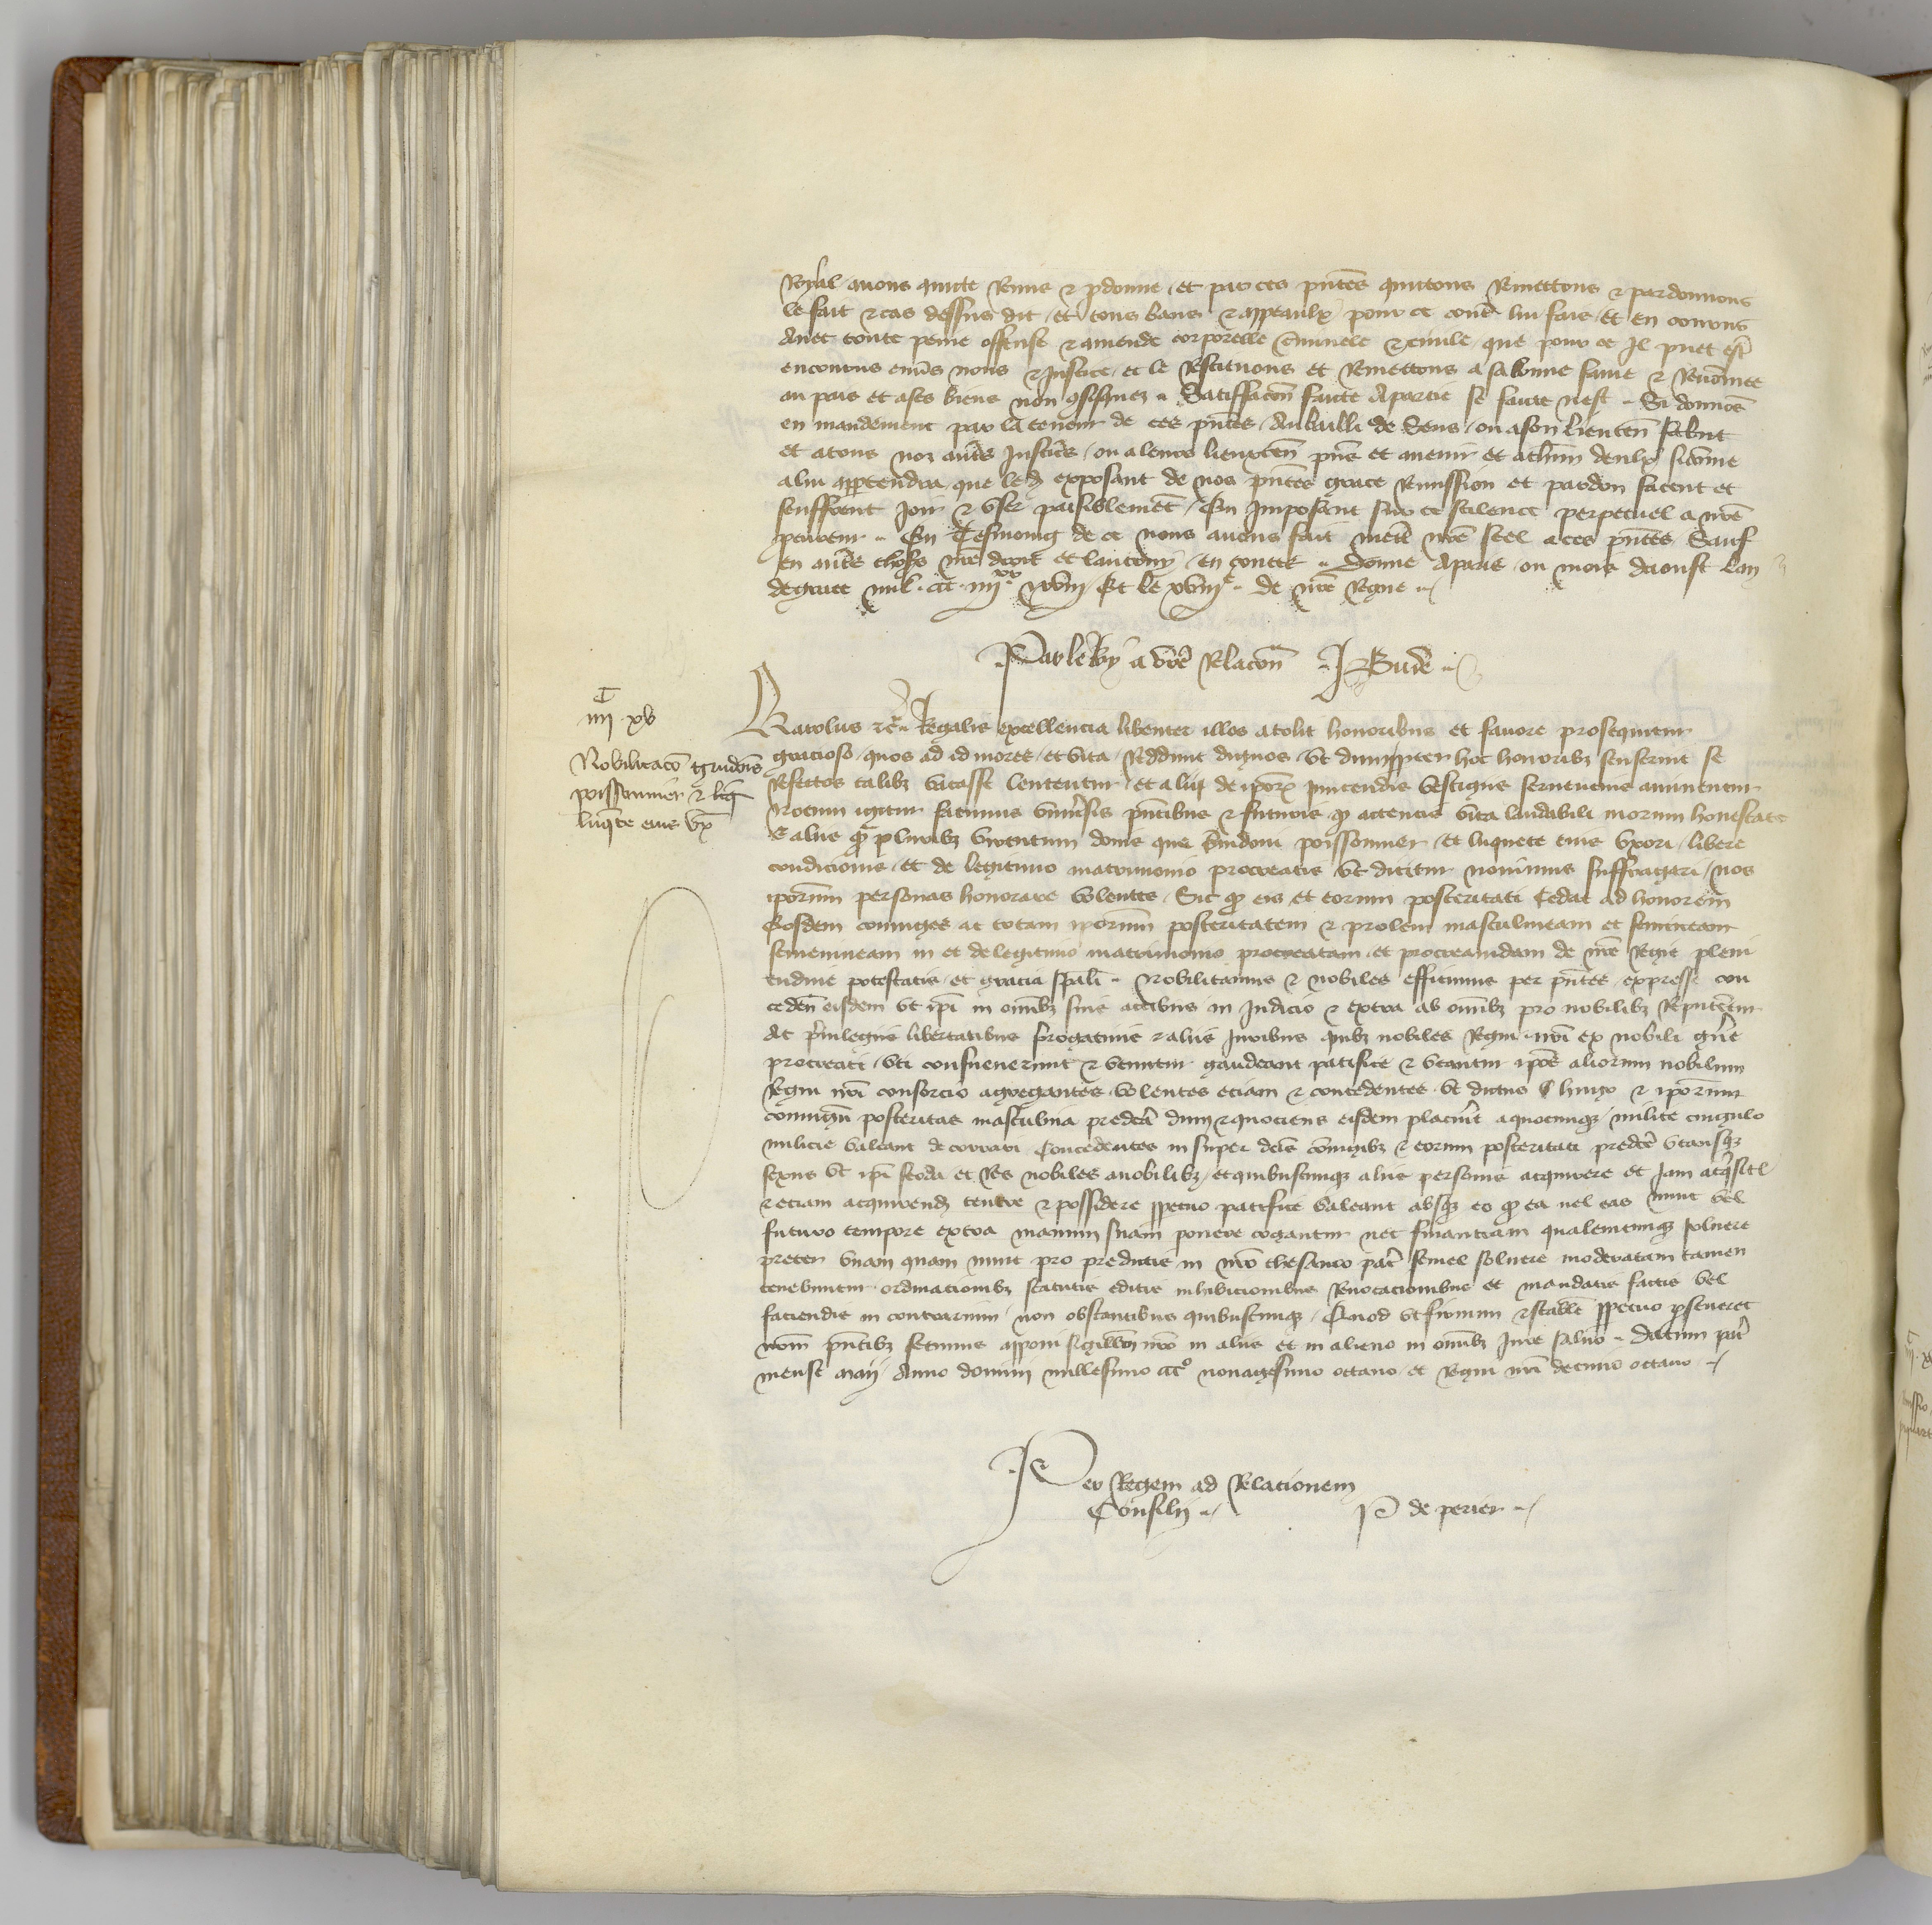 Royal avons quicte Remis & pdonne et par ces pntes quictons Remettons & pardonnons
le fait & cas dessus dit et tous bans & appeaulx pour ce contre lui fais et en
avec toute peine offense & amende corporelle criminele & civile que pour ce Il puet estre
encouruz envs nous & Justice et le Restituons et Remettons a sa bonne fame & Renomee
au pais et a ses biens non 9fisquez Satiffacon faicte a partie se faicte nest Si donnons
en mandement par la teneur de ces pntes au bailli de Sens ou a son lieuten
et a tous noz autres Justic ou a leurs lieuxten pns et avenir et a chun deulx sicome
a lui appertendra que led exposant de nos pntes grace Remission et pardon facent et
seuffrent joir & user paisiblemet En imposant sur ce scilence perpetuel a nre
procureur En Tesmoing de ce nous avons fait mettre nre seel a ces pntes Sauf
en autres choses nre droit et lautruy en toutes Donne a paris ou mois daoust lan
de grace mil ccc iiijxx xviij Et le xviije de nre Regne
Par le Roy a vre Relacon J Bude
iiij xv
Nobilitaco
poissonnier &
luqete eius ux
Karolus &c Regalis excellencia libenter illos atolit honoribus et favore prosequitur
gracioso quos ad id mores et vita Reddunt dignos ut dum ppter hoc honoribz senserint se
Refectos talibz vacasse letentur et alij de ipor vestigiis
Notum igitur facimus univsis pntibus & futuris qp attentis vita laudabili morum honestate
& aliis qp pluribz virtutum donis que poissonnier et luquete eius uxori libere
condicionis et de legitimo matrimonio procreatis ut dicitur novimus suffragari nos
iporum personas honorare volentes Sic qp eis et eorum posteritati cedat ad honorem
Eosdem coniuges ac totam iporum posteritatem & prolem masculineam et femineam
femenineam in et de legitimo matrimonio procreatam et procreandam de nre Regie pleni
tudine potestatis et gracia spali Nobilitamus & nobiles efficimus per pntes expresse con
ceden eisdem ut ipi in omibz suis actibus in Judicio & extra ab omibz pro nobilibz Reputetur
Ac privilegiis libertatibus progativis & aliis juribus quibz nobiles Regni nri ex nobili gne
procreati uti consueverunt & utuntur gaudeant pacifice & utantur ipos aliorum nobilium
Regni nri consorcio agregantes volentes etiam & concedentes ut dictus & iporum
coniugu posteritas masculina predca dum & quociens eisdem placuit a quocunqz milite cingulo
milicie valeant decorari Concedentes insuper dcis coniugibz & eorum posteritati predce utriusqz
sexus ut ipi feoda et Res nobiles a nobilibz et quibuscunqz aliis personis acquirere et Jam acqsit
& etiam acquirend tenere & possidere ppetuo pacifice valeant absqz eo qp ea vel eas nunc vel
futuro tempore extra manum suam ponere cogantur nec financiam qualemcunqz solvere
preter unam quam nunc pro predictis in nro thesauro par semel solvere moderatam tamen
tenebuntur ordinacionibz statutis editis inhibicionibus Revocacionibus et mandatis factis vel
faciendis in contrarium non obstantibus quibuscunqz Quod ut firmum & stabile ppetuo pseveret
nrm pntibz fecimus apponi sigillum nro in aliis et in alieno in omibz Jure salvo Datum par
mense maij Anno domini millesimo ccco nonagesimo octavo et Regni nri decimo octavo
Per Regem ad Relacionem
Consilij P de perier